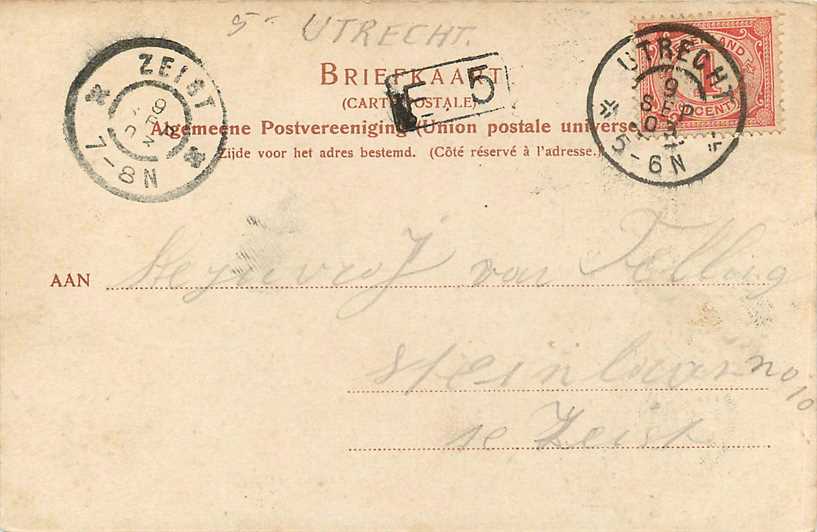 5- UTRECHT.
ZEIST
7-8N
BRIEFKAART
(CARTE POSTALE)
F 5
Algemeene Postvereeniging (Union postale universelle)
Zijde voor het adres bestemd. (Côté réservé à l'adresse.)
UTRECHT
9 SEP
5-6N
NEDERLAND
1 CENT
AAN
van
no 10
te Zeist